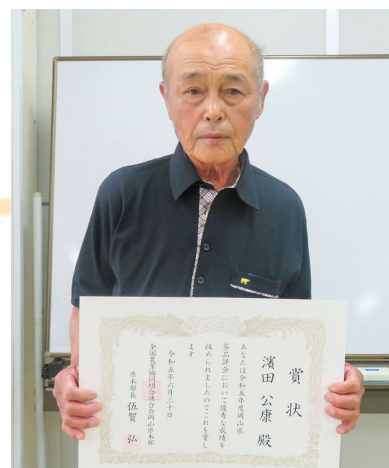 賞状
濱田公康殿
あなたは令和五年度岡山県
茶品評会において優秀な成績を
収められましたのでこれを賞し
ます
令和五年六月三十日
全国農業協同組合連合会岡山県本部
県本部長 伍賀弘